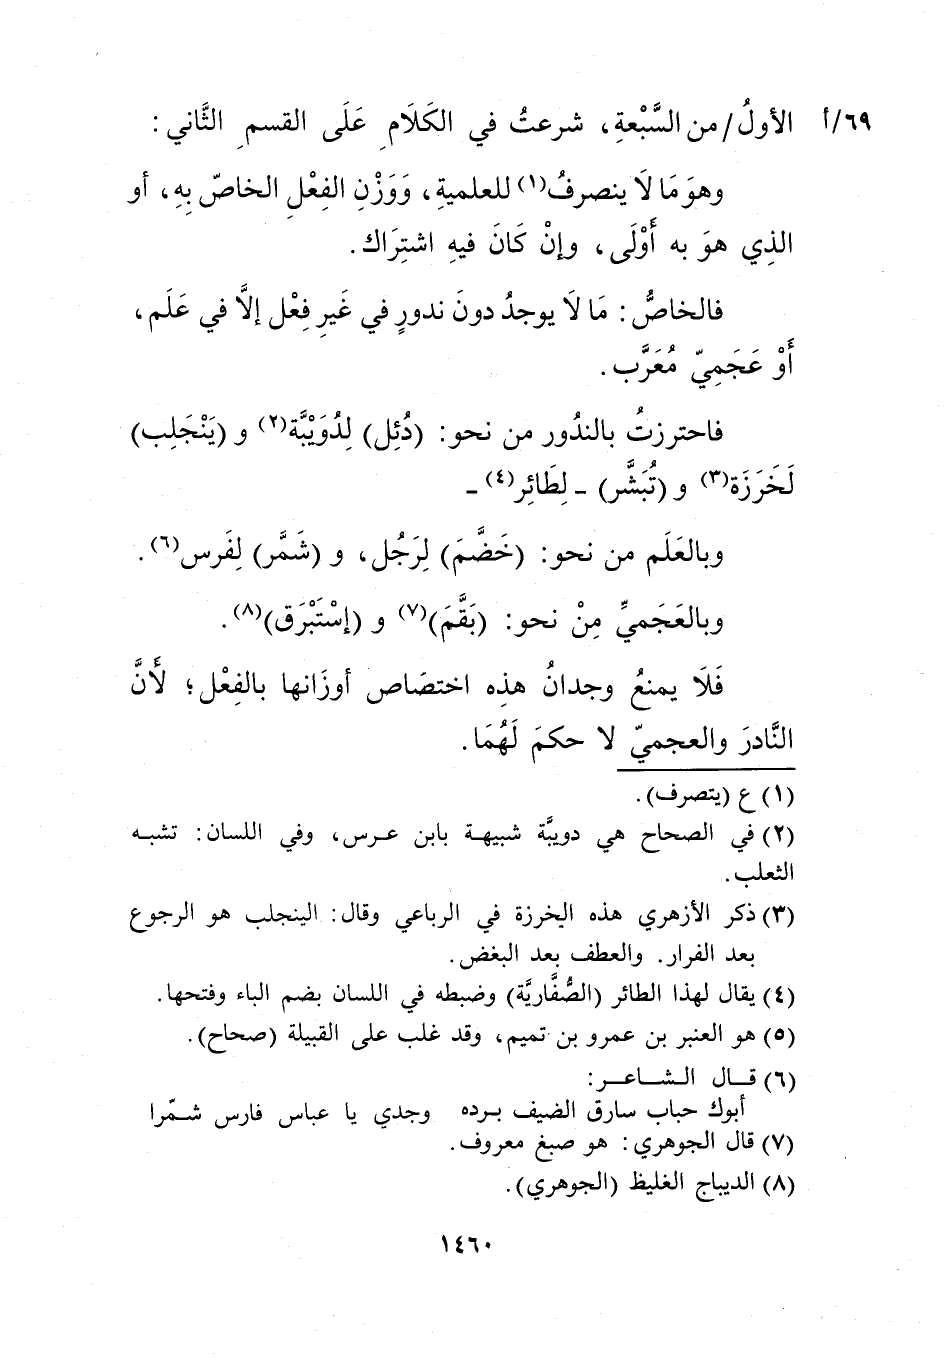 ٦٩/أ الأولُ/ من السَّبْعةِ، شرعتُ في الكَلَامِ عَلَى القسمِ الثَّاني:
وهوَ مَا لَا ينصرفُ(١) للعلميةِ، وَوَزْنِ الفِعْلِ الخاصّ بِهِ، أو
الذِي هوَ به أَوْلَى، وإنْ كَانَ فيهِ اشتِرَاك.
فالخاصُّ: مَا لَا يوجدُ دونَ ندورٍ في غَيرِ فِعْل إلاَّ في عَلَم،
أَوْ عَجَمِيّ مُعَرَّب.
فاحترزتُ بالندُور من نحو: (دُئِل) لِدُوَيْبَّة(٢) و (يَنْجَلِب)
لَخَرَزَة(٣) و (تُبَشَّر) ـ لِطَائِر(٤) ـ
وبالعَلَم من نحو: (خَضَّمَ) لِرَجُل، و (شَمَّر) لِفَرس(٦).
وبالعَجَميِّ مِنْ نحو: (بَقَّمَ)(٧) و (إسْتَبْرَق)(٨).
فَلَا يمنعُ وجدانُ هذِه اختصَاص أوزَانها بالفِعْل؛ لأَنَّ
النَّادرَ والعجميّ لا حكمَ لَهُمَا.
(١) ع (يتصرف).
(٢) في الصحاح هي دويبَّة شبيهة بابن عرس، وفي اللسان: تشبه
الثعلب.
(٣) ذكر الأزهري هذه الخرزة في الرباعي وقال: الينجلب هو الرجوع
بعد الفرار. والعطف بعد البغض.
(٤) يقال لهذا الطائر (الصُّفَّاريَّة) وضبطه في اللسان بضم الباء وفتحها.
(٥) هو العنبر بن عمرو بن تميم، وقد غلب على القبيلة (صحاح).
(٦) قال الشاعر:
أبوك حباب سارق الضيف برده وجدي يا عباس فارس شمّرا
(٧) قال الجوهري: هو صبغ معروف.
(٨) الديباج الغليظ (الجوهري).
١٤٦٠